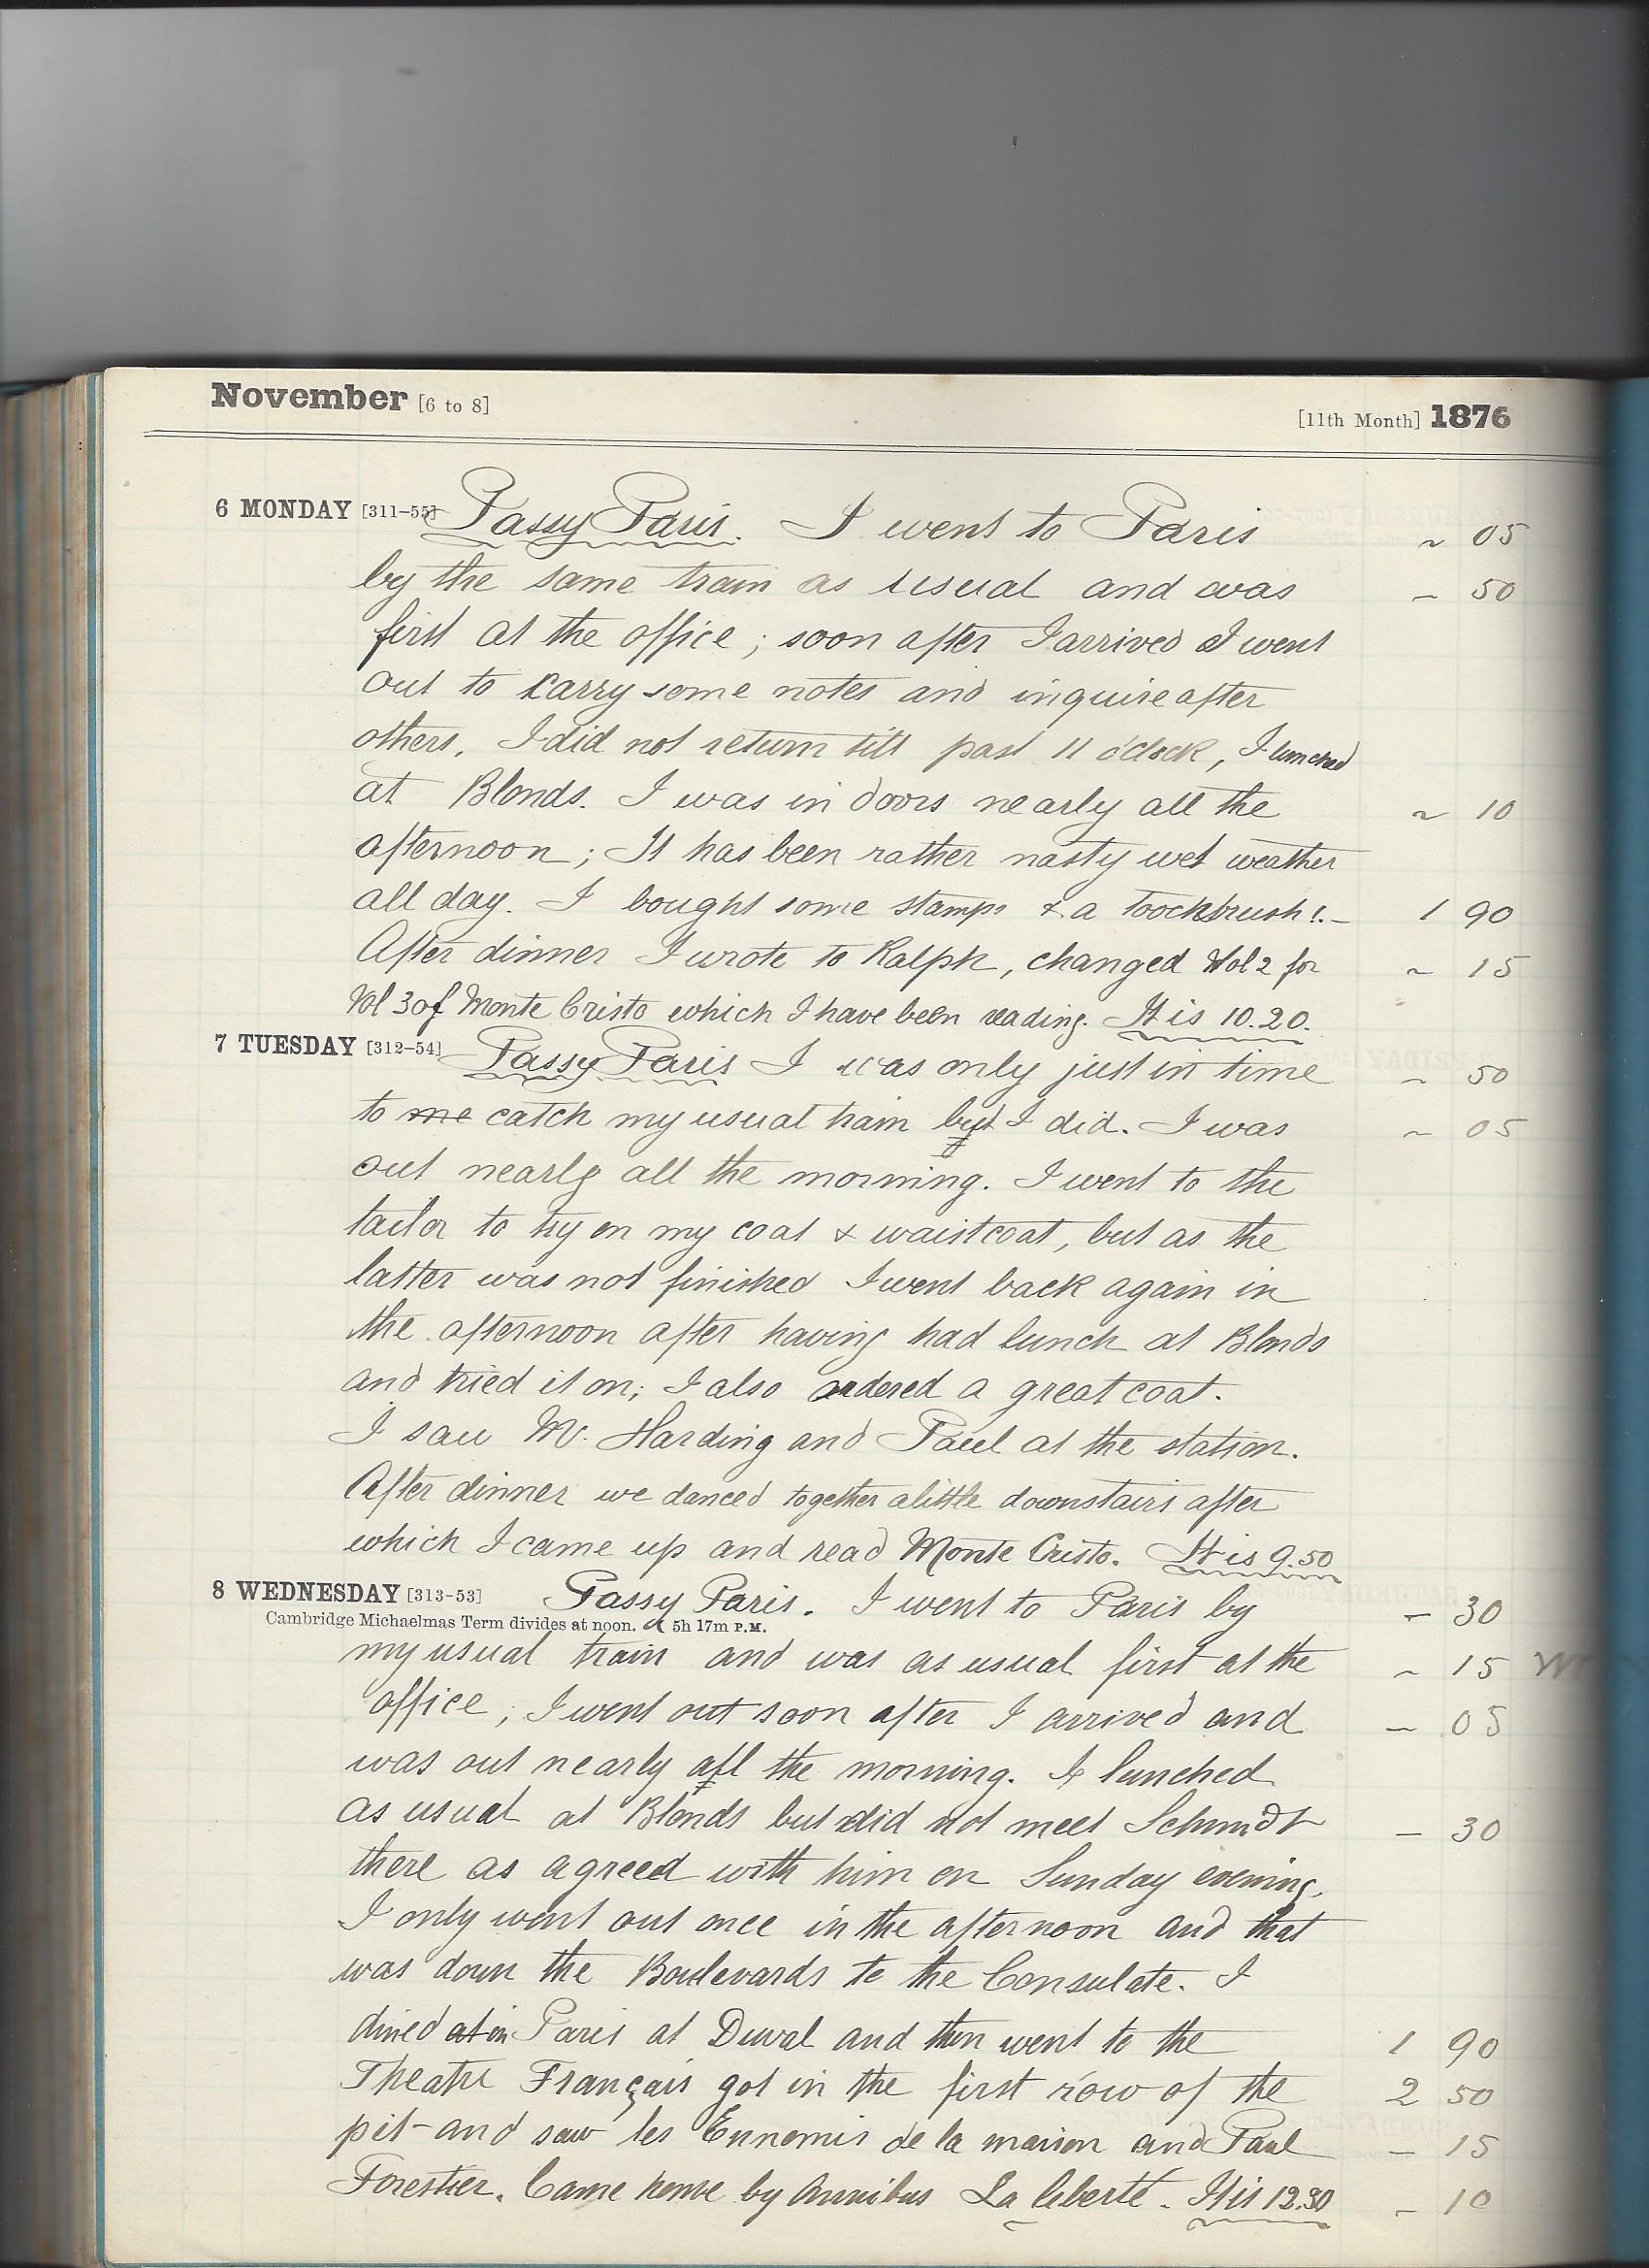 November [6 to 8] [11th Month] 1876
6 MONDAY [311-55] Passy Paris. I went to Paris ~ 05
by the same train as usual and was – 50
first at the office; soon after I arrived I went
out to carry some notes and inquire after
others. I did not return till past 11 o'clock, I lunched
at Blonds. I was in doors nearly all the ~ 10
afternoon; It has been rather nasty wet weather
all day. I bought some stamps & a toothbrush!.– 1 90
After dinner I wrote to Ralph, changed Vol 2 for ~ 15
Vol 3 of Monte Cristo which I have been reading. It is 10.20.
7 TUESDAY [312-54] Passy Paris I was only just in time – 50
to me catch my usual train but I did. I was ~ 05
out nearly all the morning. I went to the
tailor to try on my coat & waistcoat, but as the
latter was not finished I went back again in
the afternoon after having had lunch at Blonds
and tried it on; I also ordered a great coat.
I saw Mr. Harding and Paul at the station.
After dinner we danced together a little downstairs after
which I came up and read Monte Cristo. It is 9.50
8 WEDNESDAY [313-53] Passy Paris. I went to Paris by – 30
Cambridge Michaelmas Term divides at noon. 5h 17m P.M.
my usual train and was as usual first at the ~ 15
office; I went out soon after I arrived and – 05
was out nearly all the morning. I lunched
as usual at Blonds but did not meet Schmidt – 30
there as agreed with him on Sunday evening.
I only went out once in the afternoon and that
was down the Boulevards to the Consulate. I
dined at in Paris at Duval and then went to the 1 90
Theatre Français got in the first row of the 2 50
pit and saw les Ennemis de la maison and Paul – 15
Forestier. Came home by Omnibus La liberté. It is 12.30 – 10